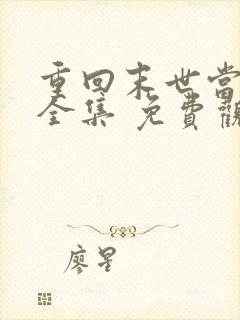 重回末世當
全集 免費觀
廖星